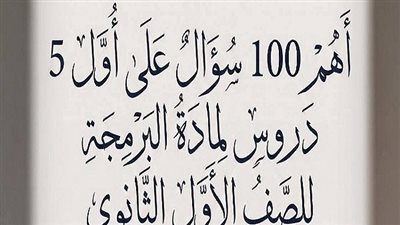 أَهُمْ 100 سُؤَالٌ عَلَىٰ أُوَّلَ 5
دَروسٍ لِمادَةُ البَرْمِجَةِ
للصَّفُ الأَوَّلِ الثَّانوي